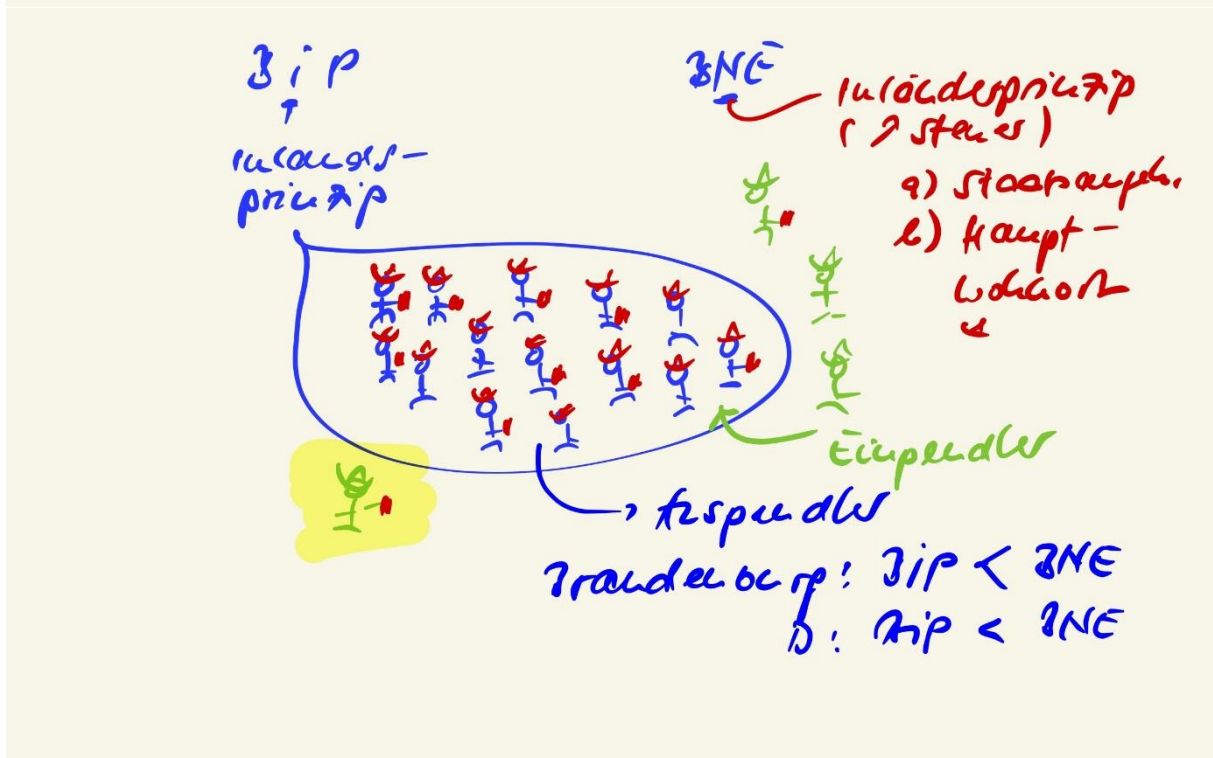 BiP
Inlands-
prinzip
BNE
Inländerprinzip
(↗ Steuer)
a) Staatsangeh.
b) Haupt-
wohnort
Einpendler
→ Auspendler
Brandenburg: BiP < BNE
D: BiP < BNE